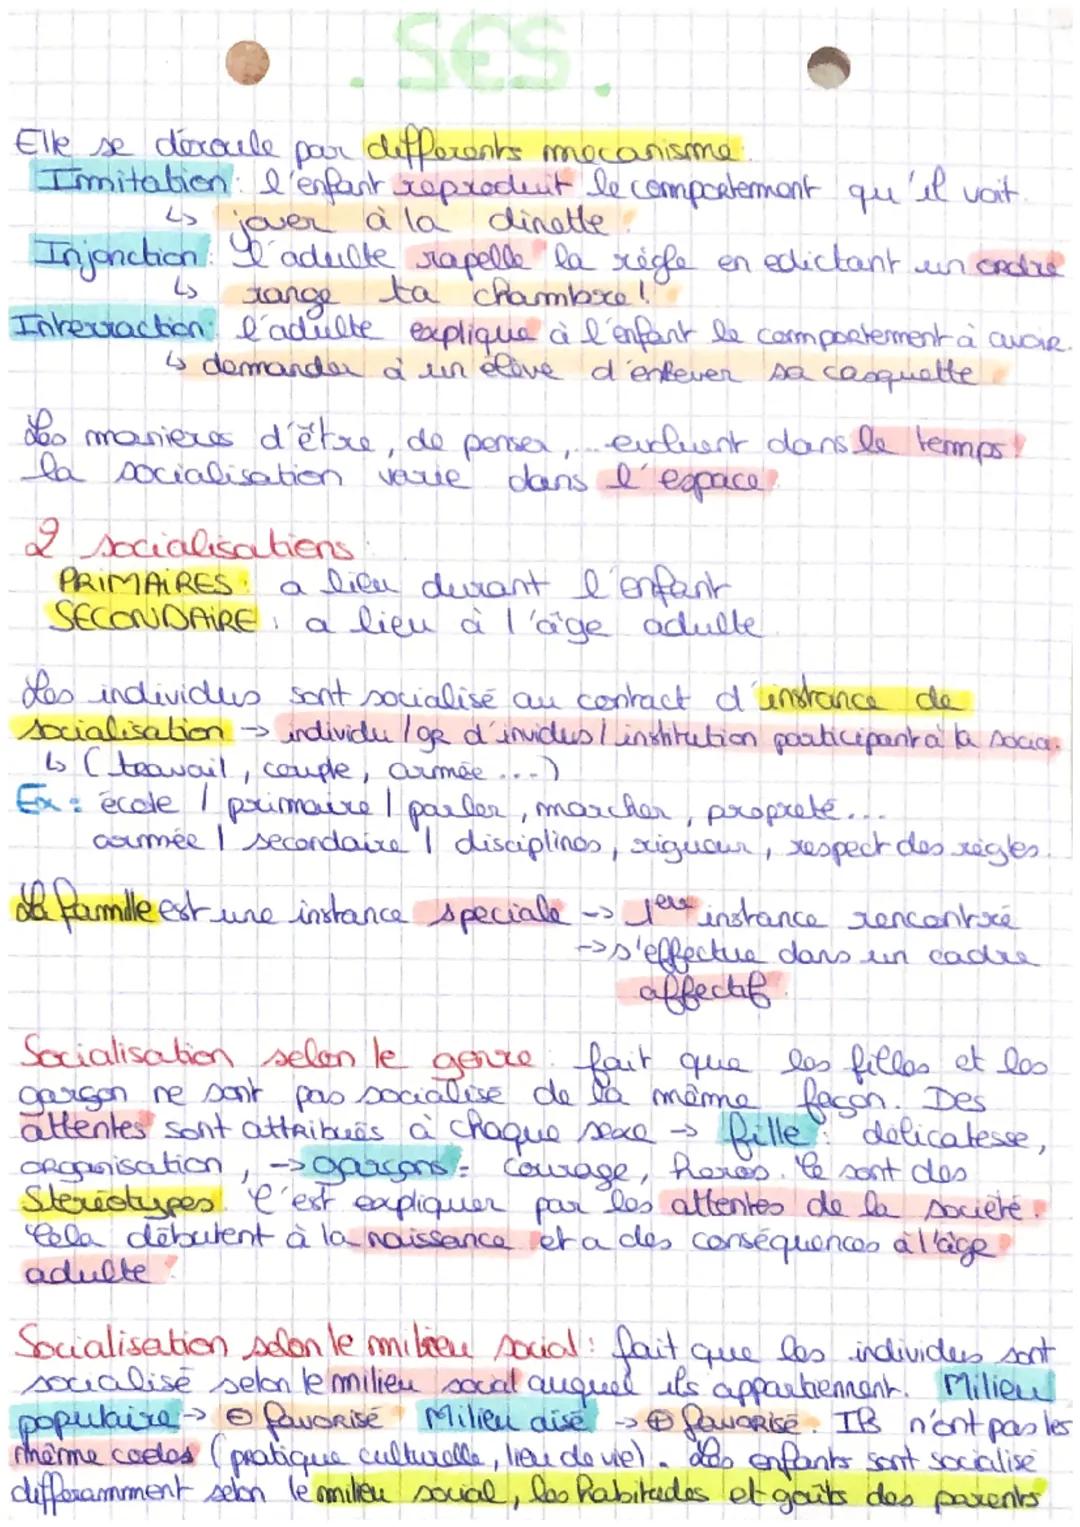 . SES .
Elle se déroule par differents mecanisme.
Immitation : l'enfant reproduit le comportement qu'il voit.
↳ jouer à la dinette.
Injonction : l'adulte rapelle la règle en edictant un ordre
↳ range ta chambre !
Interraction : l'adulte explique à l'enfant le comportement à avoir.
↳ demander à un élève d'enlever sa casquette
Les manieres d'être, de penser,... evoluent dans le temps
la socialisation varie dans l'espace.
2 socialisations :
PRIMAIRES : a lieu durant l'enfant
SECONDAIRE : a lieu à l'âge adulte.
Les individus sont socialisé au contact d'instance de
socialisation → individu / gr d'invidus / institution participant à la socia.
↳ (travail, couple, armée ...)
Ex : école / primaire / parler, marcher, propreté...
armée / secondaire / disciplines, rigueur, respect des règles.
La famille est une instance speciale → 1ère instance rencontré
→ s'effectue dans un cadre
affectif.
Socialisation selon le genre : fait que les filles et les
garçon ne sont pas socialisé de la même façon. Des
attentes sont attribués à chaque sexe → fille : délicatesse,
organisation, → garçons = courage, heros. Ce sont des
Stéréotypes. C'est expliquer par les attentes de la société.
Cela débutent à la naissance et a des conséquences à l'âge
adulte.
Socialisation selon le milieu social : fait que les individus sont
socialisé selon le milieu social auquel ils appartiennent. Milieu
populaire → ⊖ favorisé Milieu aisé → ⊕ favorisé. Ils n'ont pas les
même codes (pratique culturelle, lieu de vie). Les enfants sont socialisé
differamment selon le milieu social, les habitudes et goûts des parents